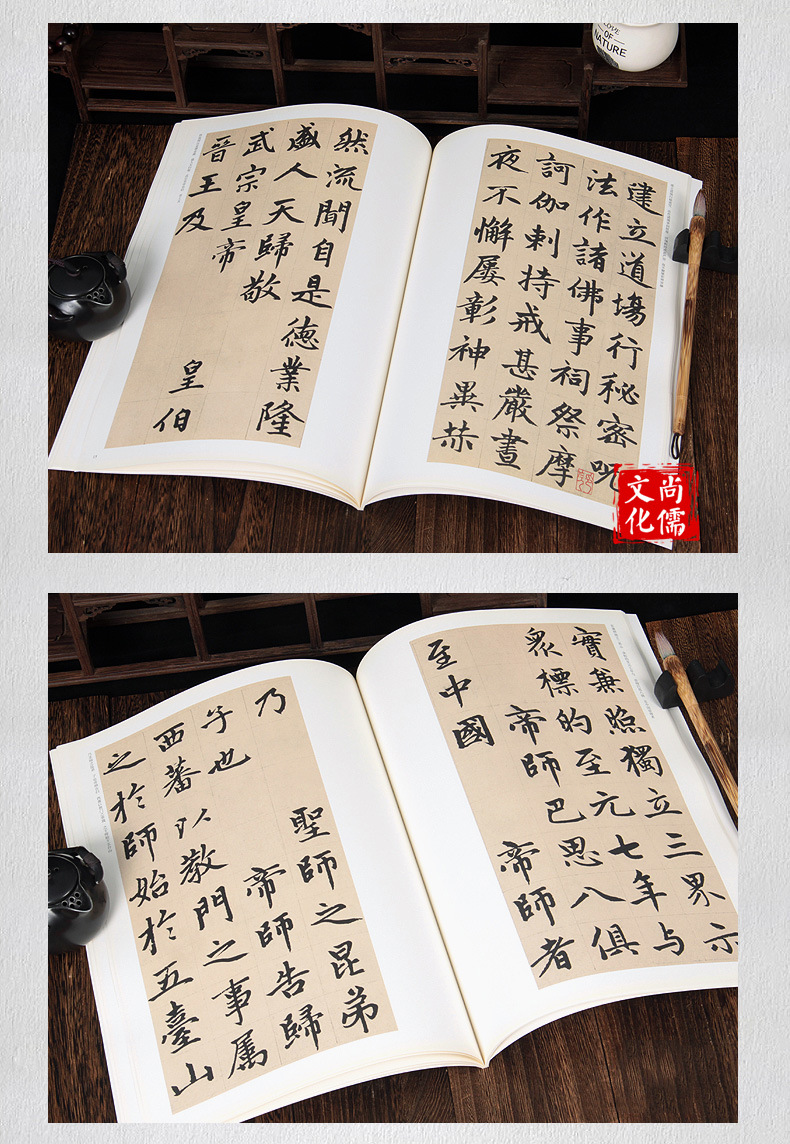 LOVE
OF
NATURE
建立道場行秘密呪
法作諸佛事祠祭摩
訶伽剌持戒甚嚴晝
夜不懈屢彰神異赫
然流聞自是德業隆
盛人天歸敬
武宗皇帝 皇伯
晉王及
尚儒
文化
實兼照獨立三界示
眾標的至元七年與
帝師巴思八俱
至中國 帝師者
乃 聖師之昆弟
子也 帝師告歸
西蕃以教門之事屬
之於師始於五臺山